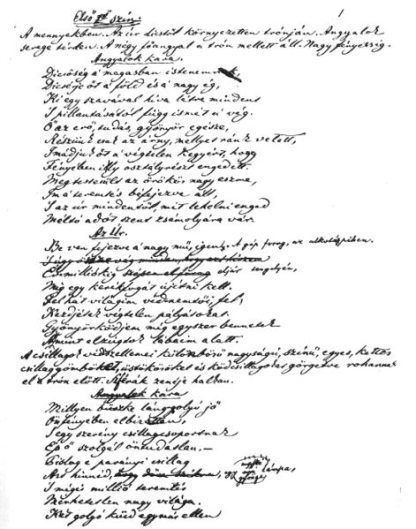 1
Első szín.
A mennyekben. Az úr dicstől környezetten trónján. Angyalok
serege térden. A négy főangyal a trón mellett áll. Nagy fényesség.
Angyalok kara.
Dicsőség a magasban istenünknek,
Dicsérje őt a föld és a nagy ég,
Ki egy szavával híva létre mindent
S pillantásától függ ismét a vég.
Ő az erő, tudás, gyönyör egésze,
Részünk csak az árny, mellyet ránk vetett,
Imádjuk őt a végtelen kegyért, hogy
Fényében illy osztályrészt engedett.
Megtestesült az örökös nagy eszme,
Ím a teremtés béfejezve már,
S az úr mindentől, mit lehelni enged
Méltó adót szent zsámolyára vár.
Az Úr.
Be van fejezve a nagy mű, igen. A gép forog, az alkotó pihen.
Év-milliókig eljár tengelyén,
Míg egy kerékfogát újítni kell.
Fel hát világim védnemtői, fel,
Kezdjétek végtelen pályátokat.
Gyönyörködjem még egyszer bennetek
Amint elzúgtok lábaim alatt.
A csillagok védszellemei különböző nagyságú, színű, egyes, kettős
csillaggömböket, üstökösöket és ködcsillagokat görgetve rohannak
el a trón előtt. Sphärák zenéje halkan.
Angyalok kara
Millyen büszke lánggolyó jő
Önfényében elbízottan,
S egy szerény csillagcsoportnak
Épp ő szolgál öntudatlan. —
Pislog e parányi csillag
Azt hinnéd, egy gyönge lámpa,
S mégis millió teremtés
Mérhetetlen nagy világa.
Két golyó küzd egymás ellen